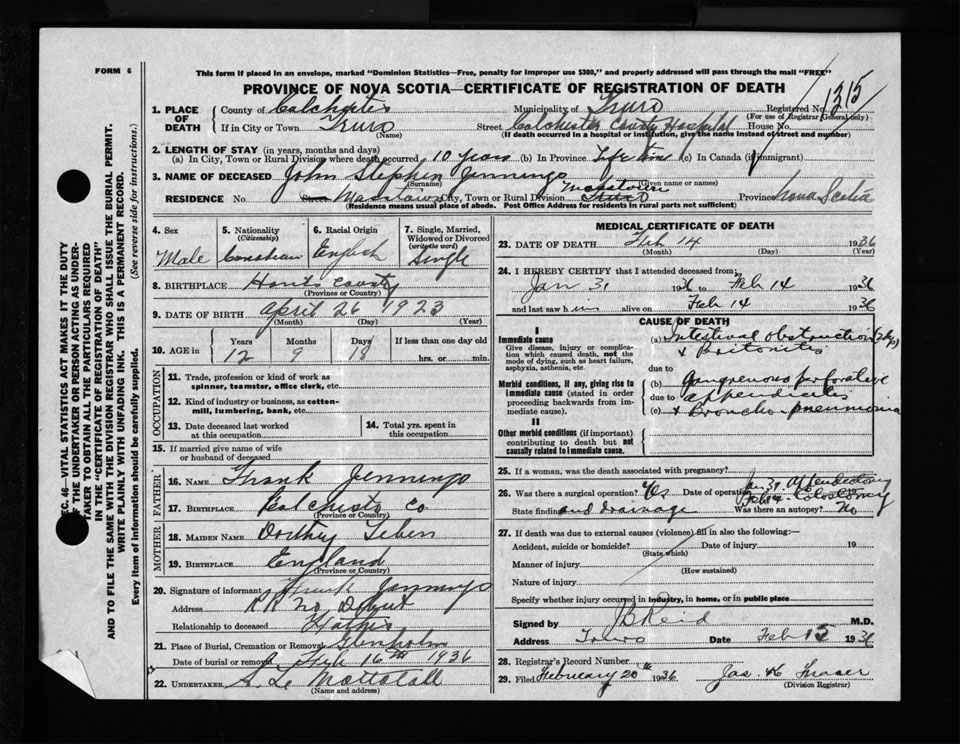 FORM 6
This form if placed in an envelope, marked "Dominion Statistics—Free, penalty for improper use $300," and properly addressed will pass through the mail "FREE"
PROVINCE OF NOVA SCOTIA—CERTIFICATE OF REGISTRATION OF DEATH
1. PLACE OF DEATH
County of Colchester Municipality of Truro Registered No. 1215
(For use of Registrar General only)
If in City or Town Truro Street Colchester County Hospital House No.
(Name) (If death occurred in a hospital or institution, give the name instead of street and number)
2. LENGTH OF STAY (in years, months and days)
(a) In City, Town or Rural Division where death occurred 10 years (b) In Province Life time (c) In Canada (if immigrant)
3. NAME OF DECEASED John Stephen Jennings
(Surname) (Given name or names)
RESIDENCE No. Street Masstown City, Town or Rural Division Truro Masstown Province Nova Scotia
(Residence means usual place of abode. Post Office Address for residents in rural parts not sufficient)
4. Sex Male
5. Nationality (Citizenship) Canadian
6. Racial Origin English
7. Single, Married, Widowed or Divorced (write the word) Single
8. BIRTHPLACE Hants County
(Province or Country)
9. DATE OF BIRTH April 26 1923
(Month) (Day) (Year)
10. AGE in Years 12 Months 9 Days 18 If less than one day old hrs. or min.
OCCUPATION
11. Trade, profession or kind of work as spinner, teamster, office clerk, etc.
12. Kind of industry or business, as cotton-mill, lumbering, bank, etc.
13. Date deceased last worked at this occupation
14. Total yrs. spent in this occupation
15. If married give name of wife or husband of deceased
FATHER
16. NAME Frank Jennings
17. BIRTHPLACE Colchester Co
(Province or Country)
MOTHER
18. MAIDEN NAME Dorthy
19. BIRTHPLACE England
(Province or Country)
20. Signature of informant Frank Jennings
Address R R No Debert
Relationship to deceased Father
21. Place of Burial, Cremation or Removal Glenholm
Date of burial or Feb 16th 1936
22. UNDERTAKER S. L. Mattatall
(Name and address)
MEDICAL CERTIFICATE OF DEATH
23. DATE OF DEATH Feb 14 1936
(Month) (Day) (Year)
24. I HEREBY CERTIFY that I attended deceased from;
Jan 31 1936 to Feb 14 1936
and last saw him alive on Feb 14 1936
CAUSE OF DEATH
I
Immediate cause
Give disease, injury or complication which caused death, not the mode of dying, such as heart failure, asphyxia, asthenia, etc.
Morbid conditions, if any, giving rise to immediate cause (stated in order proceeding backwards from immediate cause).
II
Other morbid conditions (if important) contributing to death but not causally related to immediate cause.
(a) Intestinal obstruction
& Peritonitis
due to
(b) Gangrenous perforative
due to appendicitis
(c) & Broncho-pneumonia
25. If a woman, was the death associated with pregnancy?
26. Was there a surgical operation? Yes Date of operation Jan 31 Appendectomy
State findings and drainage Was there an autopsy? No
27. If death was due to external causes (violence) fill in also the following:—
Accident, suicide or homicide? Date of injury 19
(State which)
Manner of injury
(How sustained)
Nature of injury
Specify whether injury occurred in industry, in home, or in public place
Signed by J B Reid M.D.
Address Truro Date Feb 15 1936
28. Registrar's Record Number
29. Filed February 20th 1936 Jas. H Fraser
(Division Registrar)
SEC. 46—VITAL STATISTICS ACT MAKES IT THE DUTY
OF THE UNDERTAKER OR PERSON ACTING AS UNDER-
TAKER TO OBTAIN ALL THE PARTICULARS REQUIRED
IN THE "CERTIFICATE OF REGISTRATION OF DEATH"
AND TO FILE THE SAME WITH THE DIVISION REGISTRAR WHO SHALL ISSUE THE BURIAL PERMIT.
WRITE PLAINLY WITH UNFADING INK. THIS IS A PERMANENT RECORD.
Every item of information should be carefully supplied. (See reverse side for instructions.)